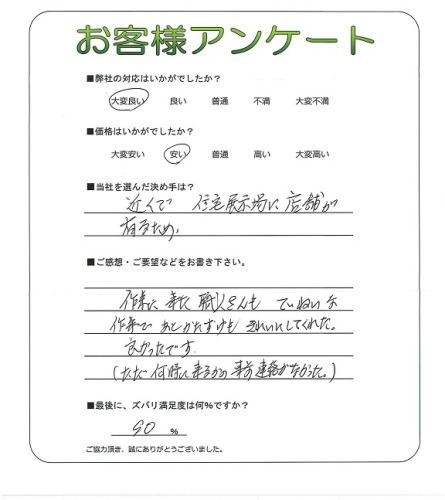 お客様アンケート
■弊社の対応はいかがでしたか？
大変良い 良い 普通 不満 大変不満
■価格はいかがでしたか？
大変安い 安い 普通 高い 大変高い
■当社を選んだ決め手は？
近くで 住宅展示場に店舗が
有るため、
■ご感想・ご要望などをお書き下さい。
作業に来た職人さんも ていねいな
作業で あとかたずけも きれいにしてくれた。
良かったです
(ただ何時に来るかの事前連絡がなかった。)
■最後に、ズバリ満足度は何％ですか？
90 ％
ご協力頂き、誠にありがとうございました。